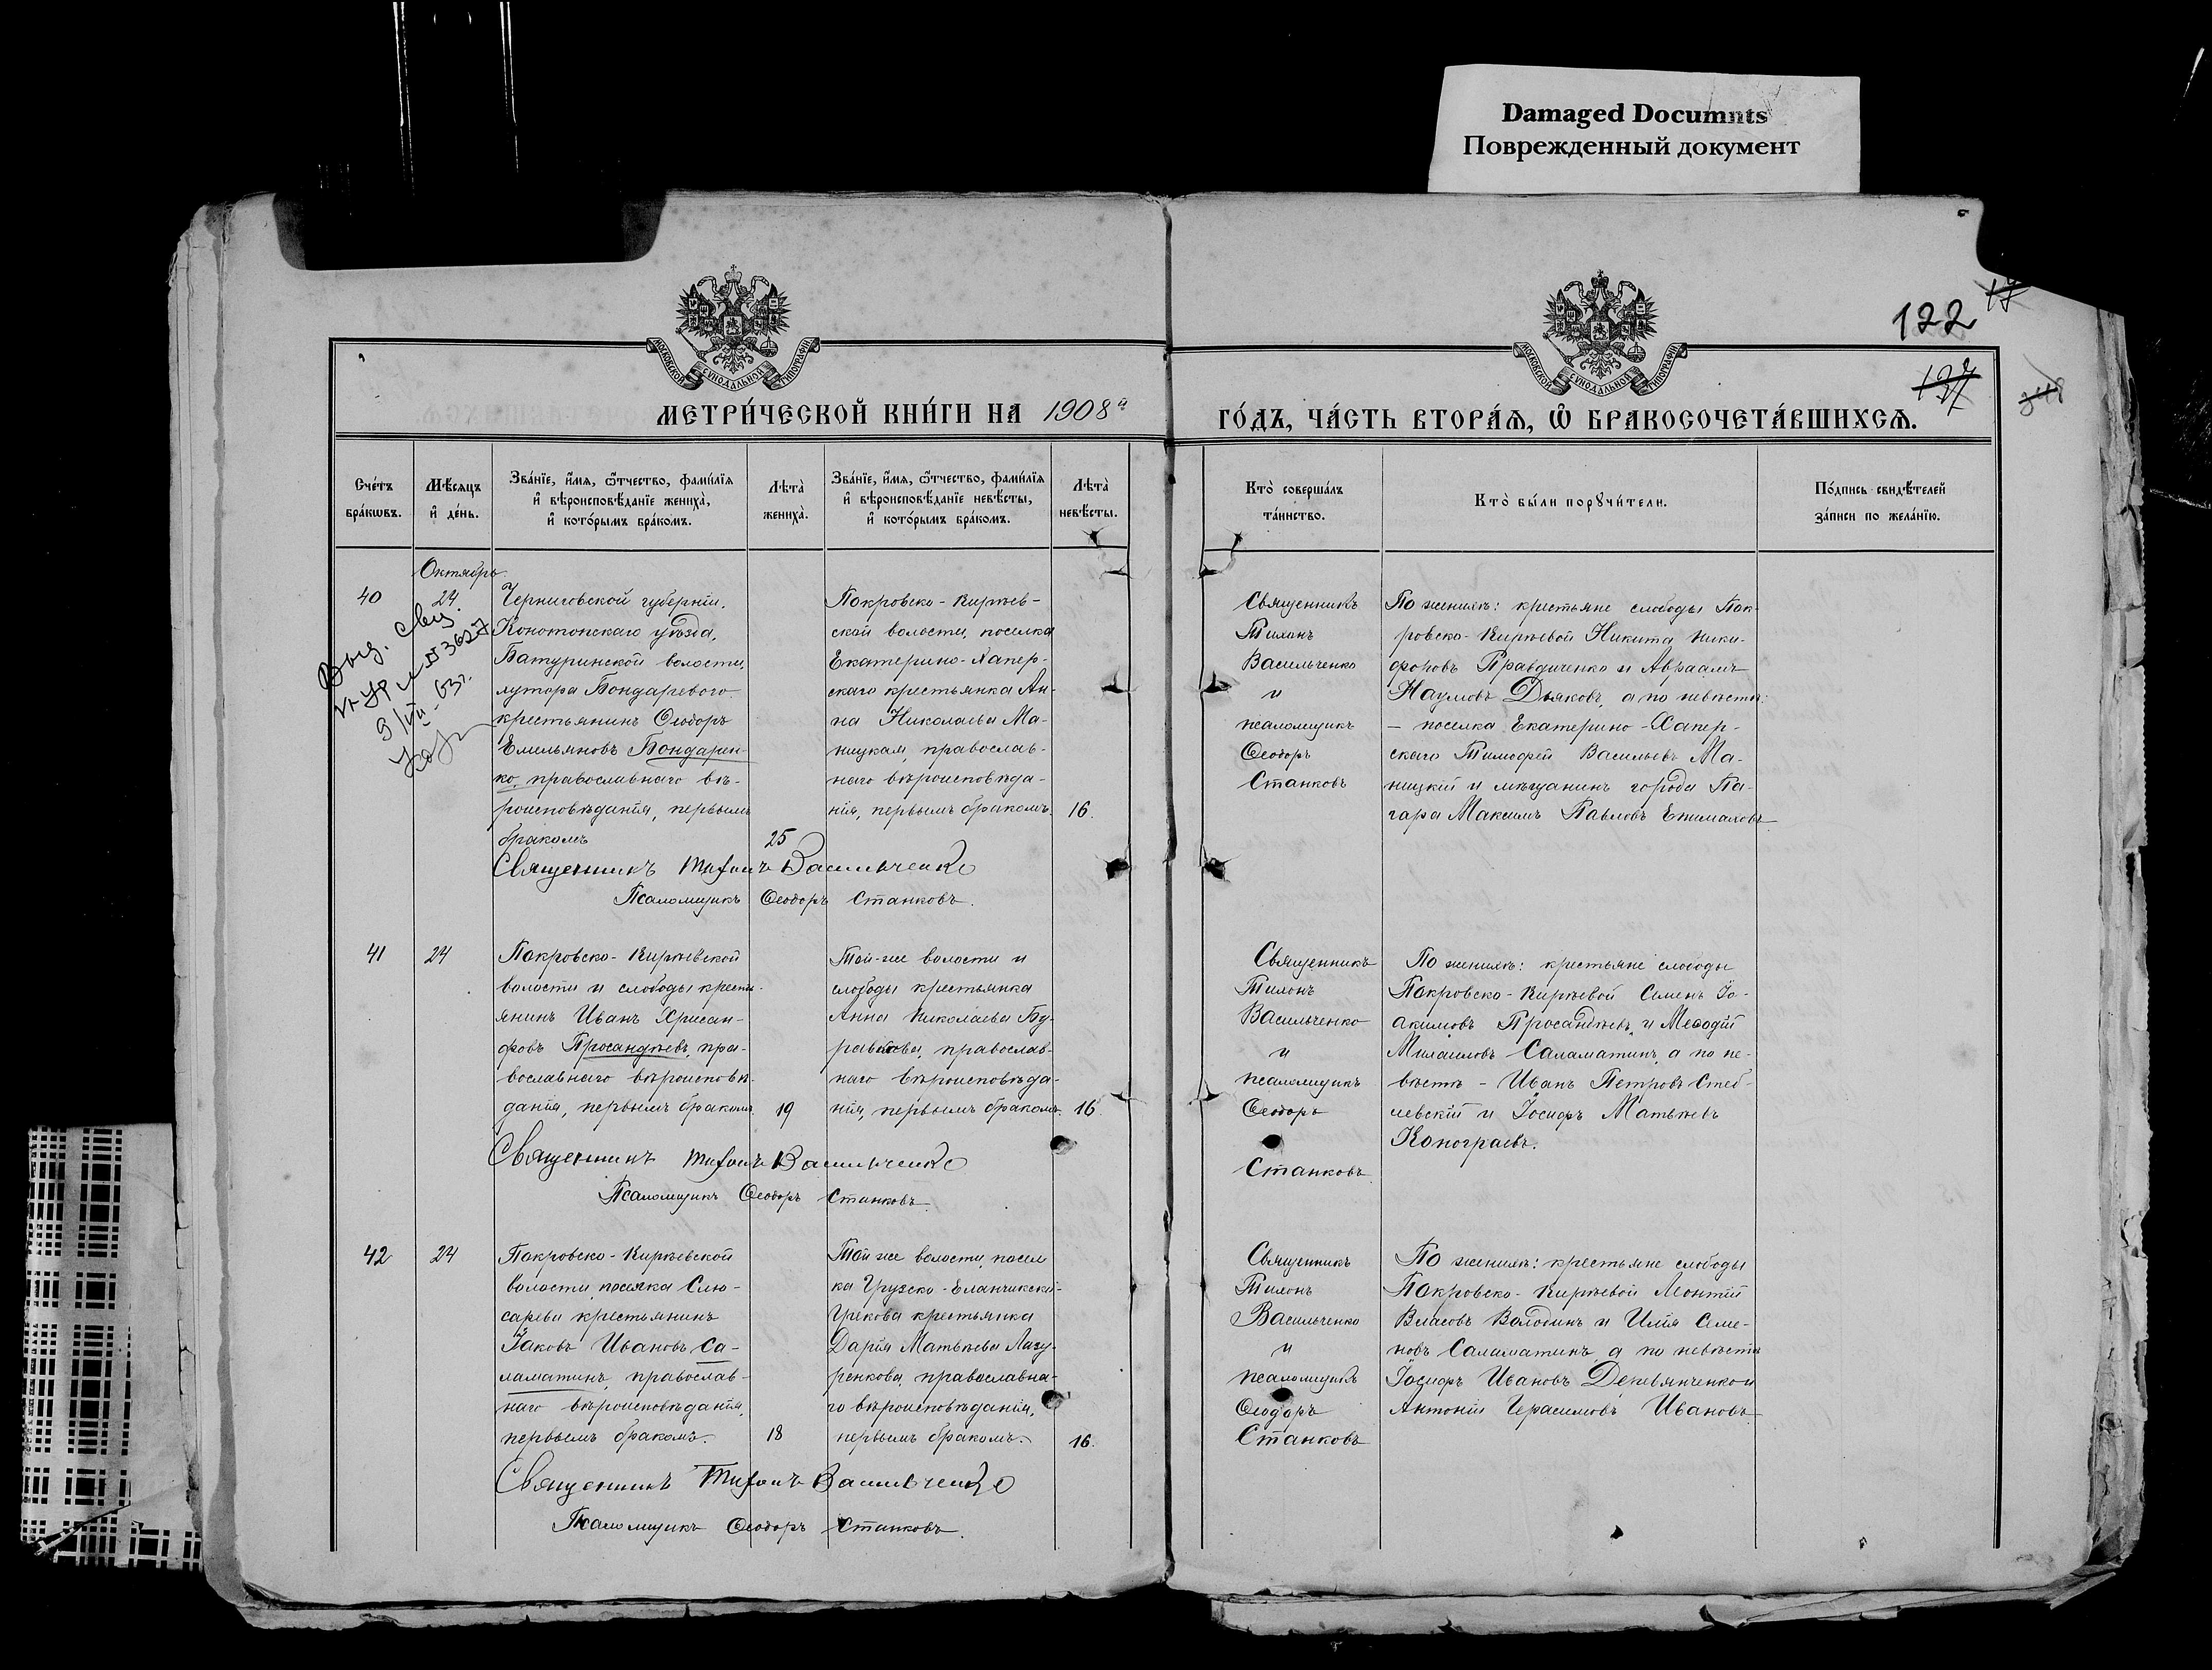 Damaged Documnts
Поврежденный документ
122
17
137
МОСКОВСКОЙ СѴНОДАЛЬНОЙ ТИПОГРАФІИ
МОСКОВСКОЙ СѴНОДАЛЬНОЙ ТИПОГРАФІИ
МЕТРИ́ЧЕСКОЙ КНИ́ГИ НА 1908й
ГО́ДЪ, ЧА́СТЬ ВТОРА́Ѧ, Ѽ БРАКОСОЧЕТА́ВШИХСѦ.
Сче́тъ
бра́кѡвъ.
Мѣ́сяцъ
и҆ де́нь.
Зва́нїе, и҆́мя, ѻ҆́тчество, фами́лїя
и҆ вѣроисповѣ́данїе жениха̀,
и҆ кото́рымъ бра́комъ.
Лѣта̀
жениха̀.
Зва́нїе, и҆́мя, ѻ҆́тчество, фами́лїя
и҆ вѣроисповѣ́данїе невѣ́сты,
и҆ кото́рымъ бра́комъ.
Лѣта̀
невѣ́сты.
Кто̀ соверша́лъ
та́инство.
Кто̀ бы́ли порꙋчи́тели.
По́дпись свидѣ́телей
за́писи по жела́нїю.
40
Октябрь
24.
Выд. свид.
№ 3627
9/VII-63г.
Черниговской губерніи,
Конотопскаго уѣзда,
Батуринской волости,
хутора Бондаревого
крестьянинъ Ѳеодоръ
Емельяновъ Бондарен-
ко, православнаго вѣ-
роисповѣданія, первымъ
бракомъ
25
Покровско-Кирѣев-
ской волости, поселка
Екатерино-Хапер-
скаго крестьянка Ан-
на Николаева Ма-
ницкая, православ-
наго вѣроисповѣда-
нія, первымъ бракомъ.
16.
Священникъ
Тихонъ
Васильченко
и
псаломщикъ
Ѳеодоръ
Станковъ
По женихѣ: крестьяне слободы Пок-
ровско-Кирѣевой Никита Ники-
форовъ Правдиченко и Авраамъ
Наумовъ Дьяковъ, а по невѣстѣ:
– поселка Екатерино-Хапер-
скаго Тимофей Васильевъ Ма-
ницкій и мѣщанинъ города По-
гара Максимъ Павловъ Епимаховъ
Священникъ Тихонъ Васильченко
Псаломщикъ Ѳеодоръ Станковъ.
41
24
Покровско-Кирѣевской
волости и слободы кресть-
янинъ Иванъ Хрисан-
фовъ Просандѣевъ, пра-
вославнаго вѣроисповѣ-
данія, первымъ бракомъ.
19
Той-же волости и
слободы крестьянка
Анна Николаева Бу-
равкова, православ-
наго вѣроисповѣда-
нія, первымъ бракомъ.
16.
Священникъ
Тихонъ
Васильченко
и
псаломщикъ
Ѳеодоръ
Станковъ
По женихѣ: крестьяне слободы
Покровско-Кирѣевой Семенъ Іо-
акимовъ Просандѣевъ и Меѳодій
Михаиловъ Саламатинъ, а по не-
вѣстѣ – Иванъ Петровъ Стеб-
левскій и Іосифъ Матвѣевъ
Конограевъ.
Священникъ Тихонъ Васильченко
Псаломщикъ Ѳеодоръ Станковъ.
42
24
Покровско-Кирѣевской
волости, поселка Слю-
сарева крестьянинъ
Іаковъ Ивановъ Са-
ламатинъ, православ-
наго вѣроисповѣданія,
первымъ бракомъ.
18
Той же волости, посел
ка Грузско-Еланчикски-
Грекова крестьянка
Дарія Матвѣева Лазу-
ренкова, православна-
го вѣроисповѣданія,
первымъ бракомъ.
16.
Священникъ
Тихонъ
Васильченко
и
псаломщикъ
Ѳеодоръ
Станковъ
По женихѣ: крестьяне слободы
Покровско-Кирѣевой Леонтій
Власовъ Володинъ и Илія Семе-
новъ Саламатинъ, а по невѣстѣ
Іосифъ Ивановъ Деревянченко и
Антоній Герасимовъ Ивановъ
Священникъ Тихонъ Васильченко
Псаломщикъ Ѳеодоръ Станковъ.